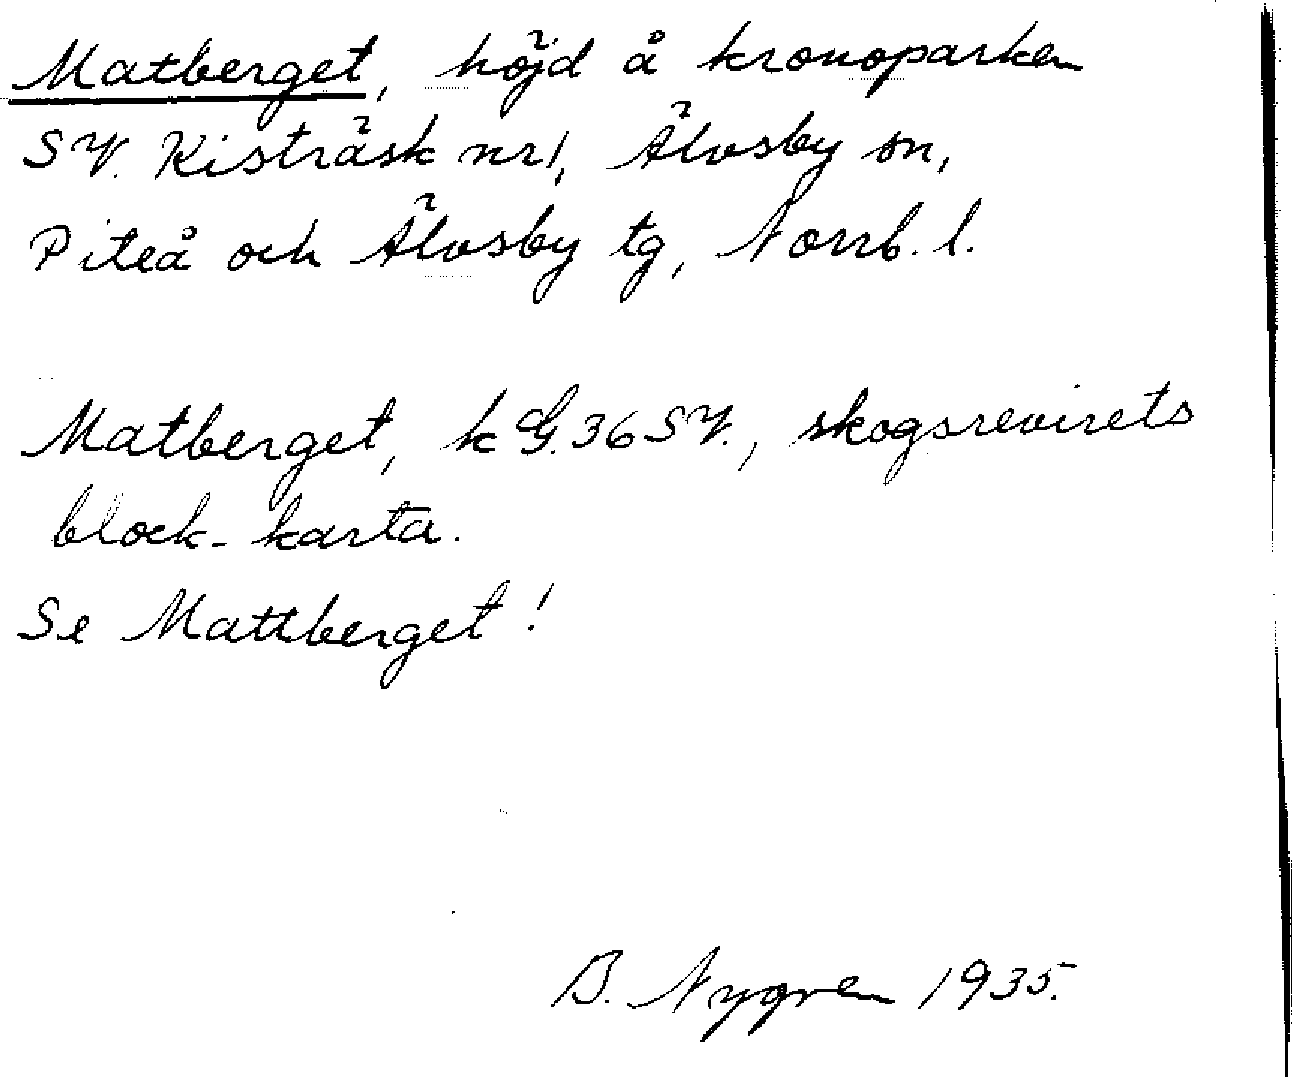 Matberget, höjd å kronoparken
SV. Kisträsk nr1, Älvsby sn,
Piteå och Älvsby tg, Norrb. l.
Matberget, k G.36 SV., skogsrevirets
block-karta.
Se Mattberget!
B. Nygren 1935.